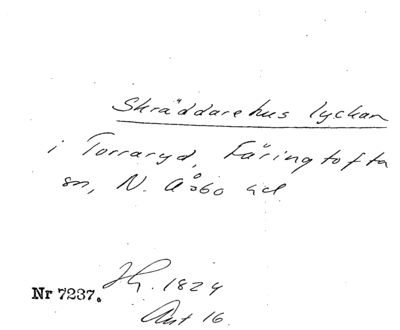 Skräddarehus lyckan
i Torraryd, Färingtofta
sn, N. Åsbo hd
Hg. 1824
Ant 16.
Nr 7237.